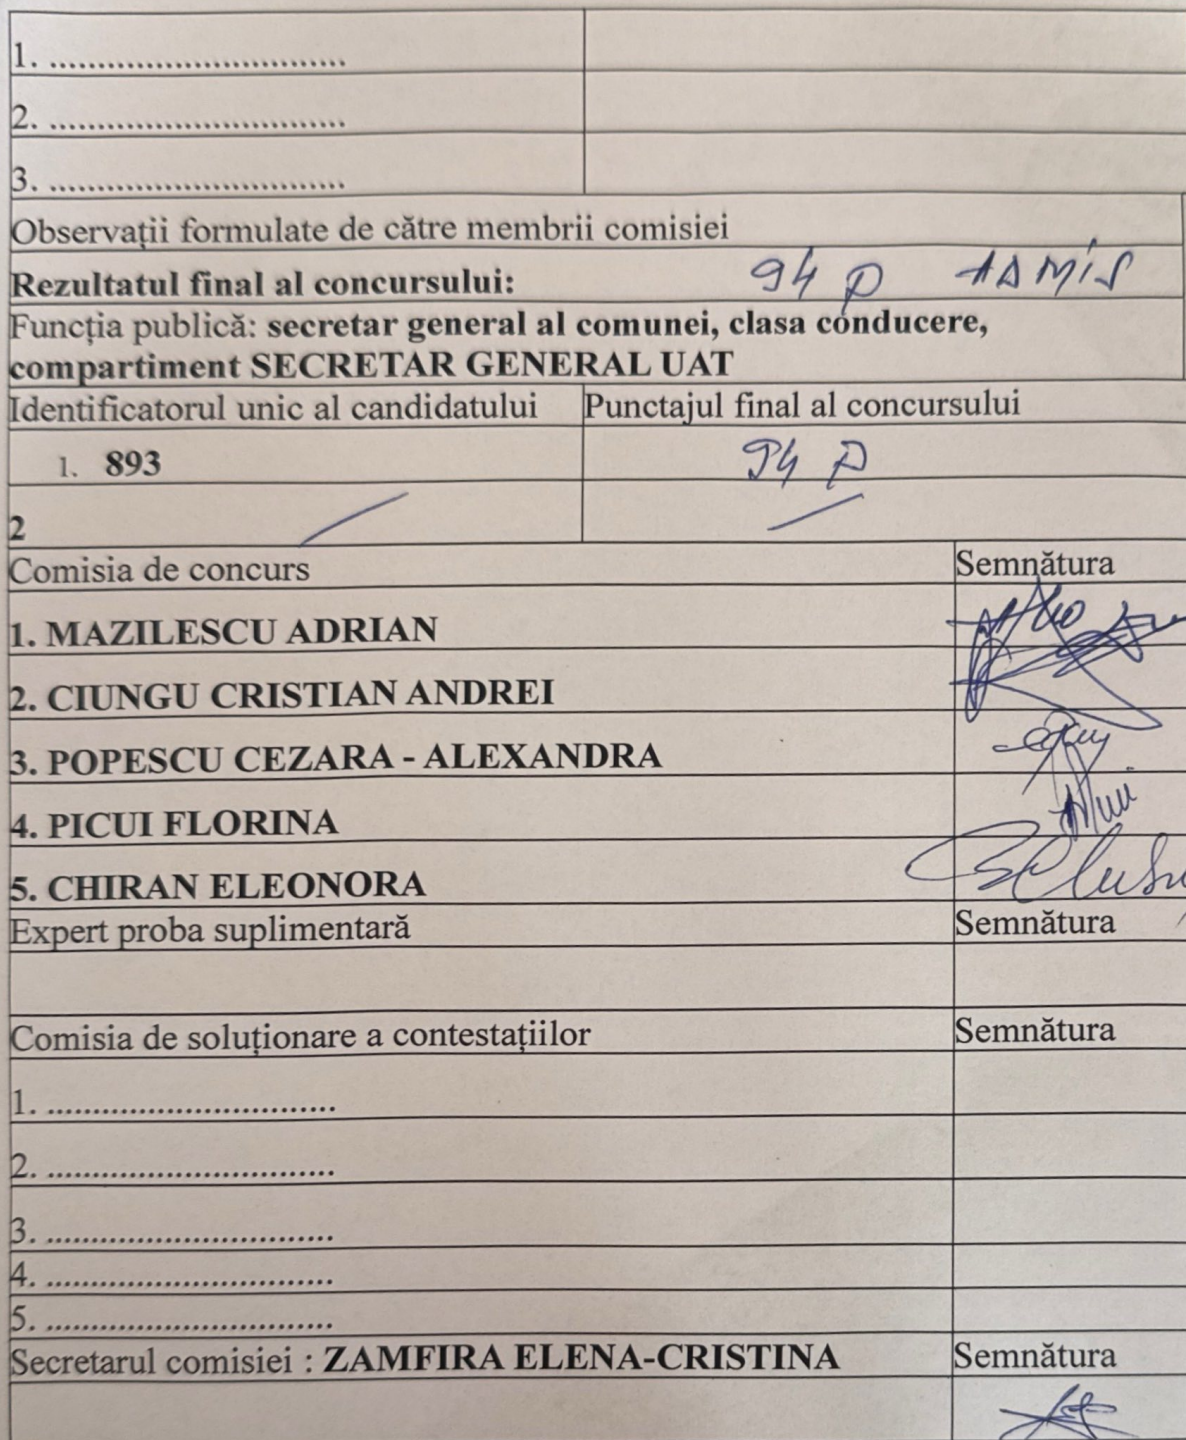 1. ..............................
2. ..............................
3. ..............................
Observații formulate de către membrii comisiei
Rezultatul final al concursului: 94 p ADMIS
Funcția publică: secretar general al comunei, clasa conducere,
compartiment SECRETAR GENERAL UAT
Identificatorul unic al candidatului Punctajul final al concursului
1. 893 94 p
2
Comisia de concurs Semnătura
1. MAZILESCU ADRIAN
2. CIUNGU CRISTIAN ANDREI
3. POPESCU CEZARA - ALEXANDRA
4. PICUI FLORINA
5. CHIRAN ELEONORA
Expert proba suplimentară Semnătura
Comisia de soluționare a contestațiilor Semnătura
1. ..............................
2. ..............................
3. ..............................
4. ..............................
5. ..............................
Secretarul comisiei : ZAMFIRA ELENA-CRISTINA Semnătura